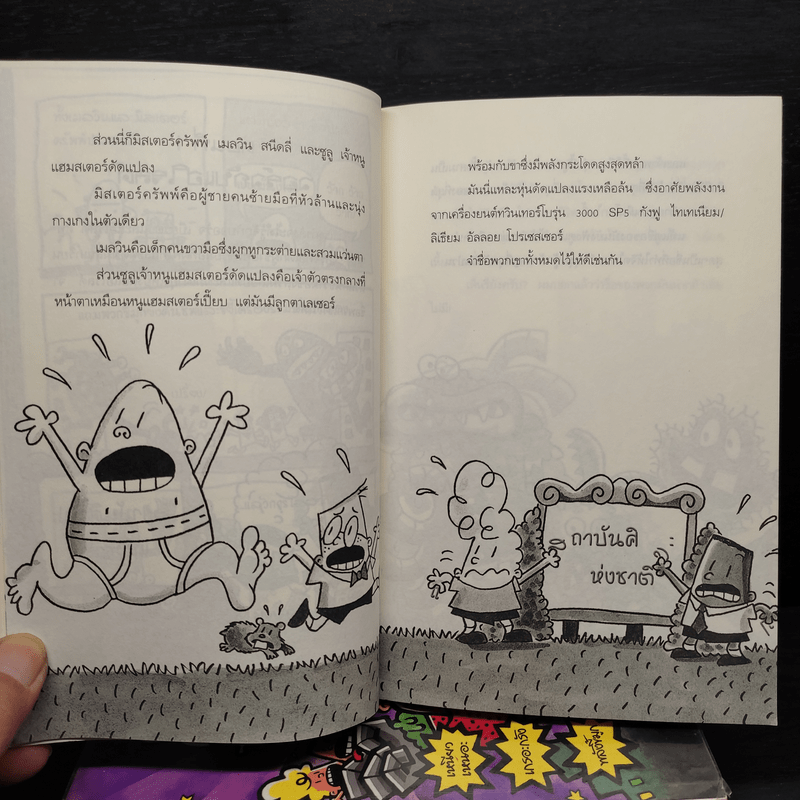 ส่วนนี่ก็มิสเตอร์ครัพพ์ เมลวิน สนีดลี่ และซูลู เจ้าหนู
แฮมสเตอร์ดัดแปลง
มิสเตอร์ครัพพ์คือผู้ชายคนซ้ายมือที่หัวล้านและนุ่ง
กางเกงในตัวเดียว
เมลวินคือเด็กคนขวามือซึ่งผูกหูกระต่ายและสวมแว่นตา
ส่วนซูลูเจ้าหนูแฮมสเตอร์ดัดแปลงคือเจ้าตัวตรงกลางที่
หน้าตาเหมือนหนูแฮมสเตอร์เปี๊ยบ แต่มันมีลูกตาเลเซอร์
พร้อมกับขาซึ่งมีพลังกระโดดสูงสุดหล้า
มันนี่แหละหุ่นดัดแปลงแรงเหลือล้น ซึ่งอาศัยพลังงาน
จากเครื่องยนต์ทวินเทอร์โบรุ่น 3000 SP5 กังฟู ไทเทเนียม/
ลิเธียม อัลลอย โปรเซสเซอร์
จำชื่อพวกเขาทั้งหมดไว้ให้ดีเช่นกัน
ถาบันศิ
ห่งชาติ